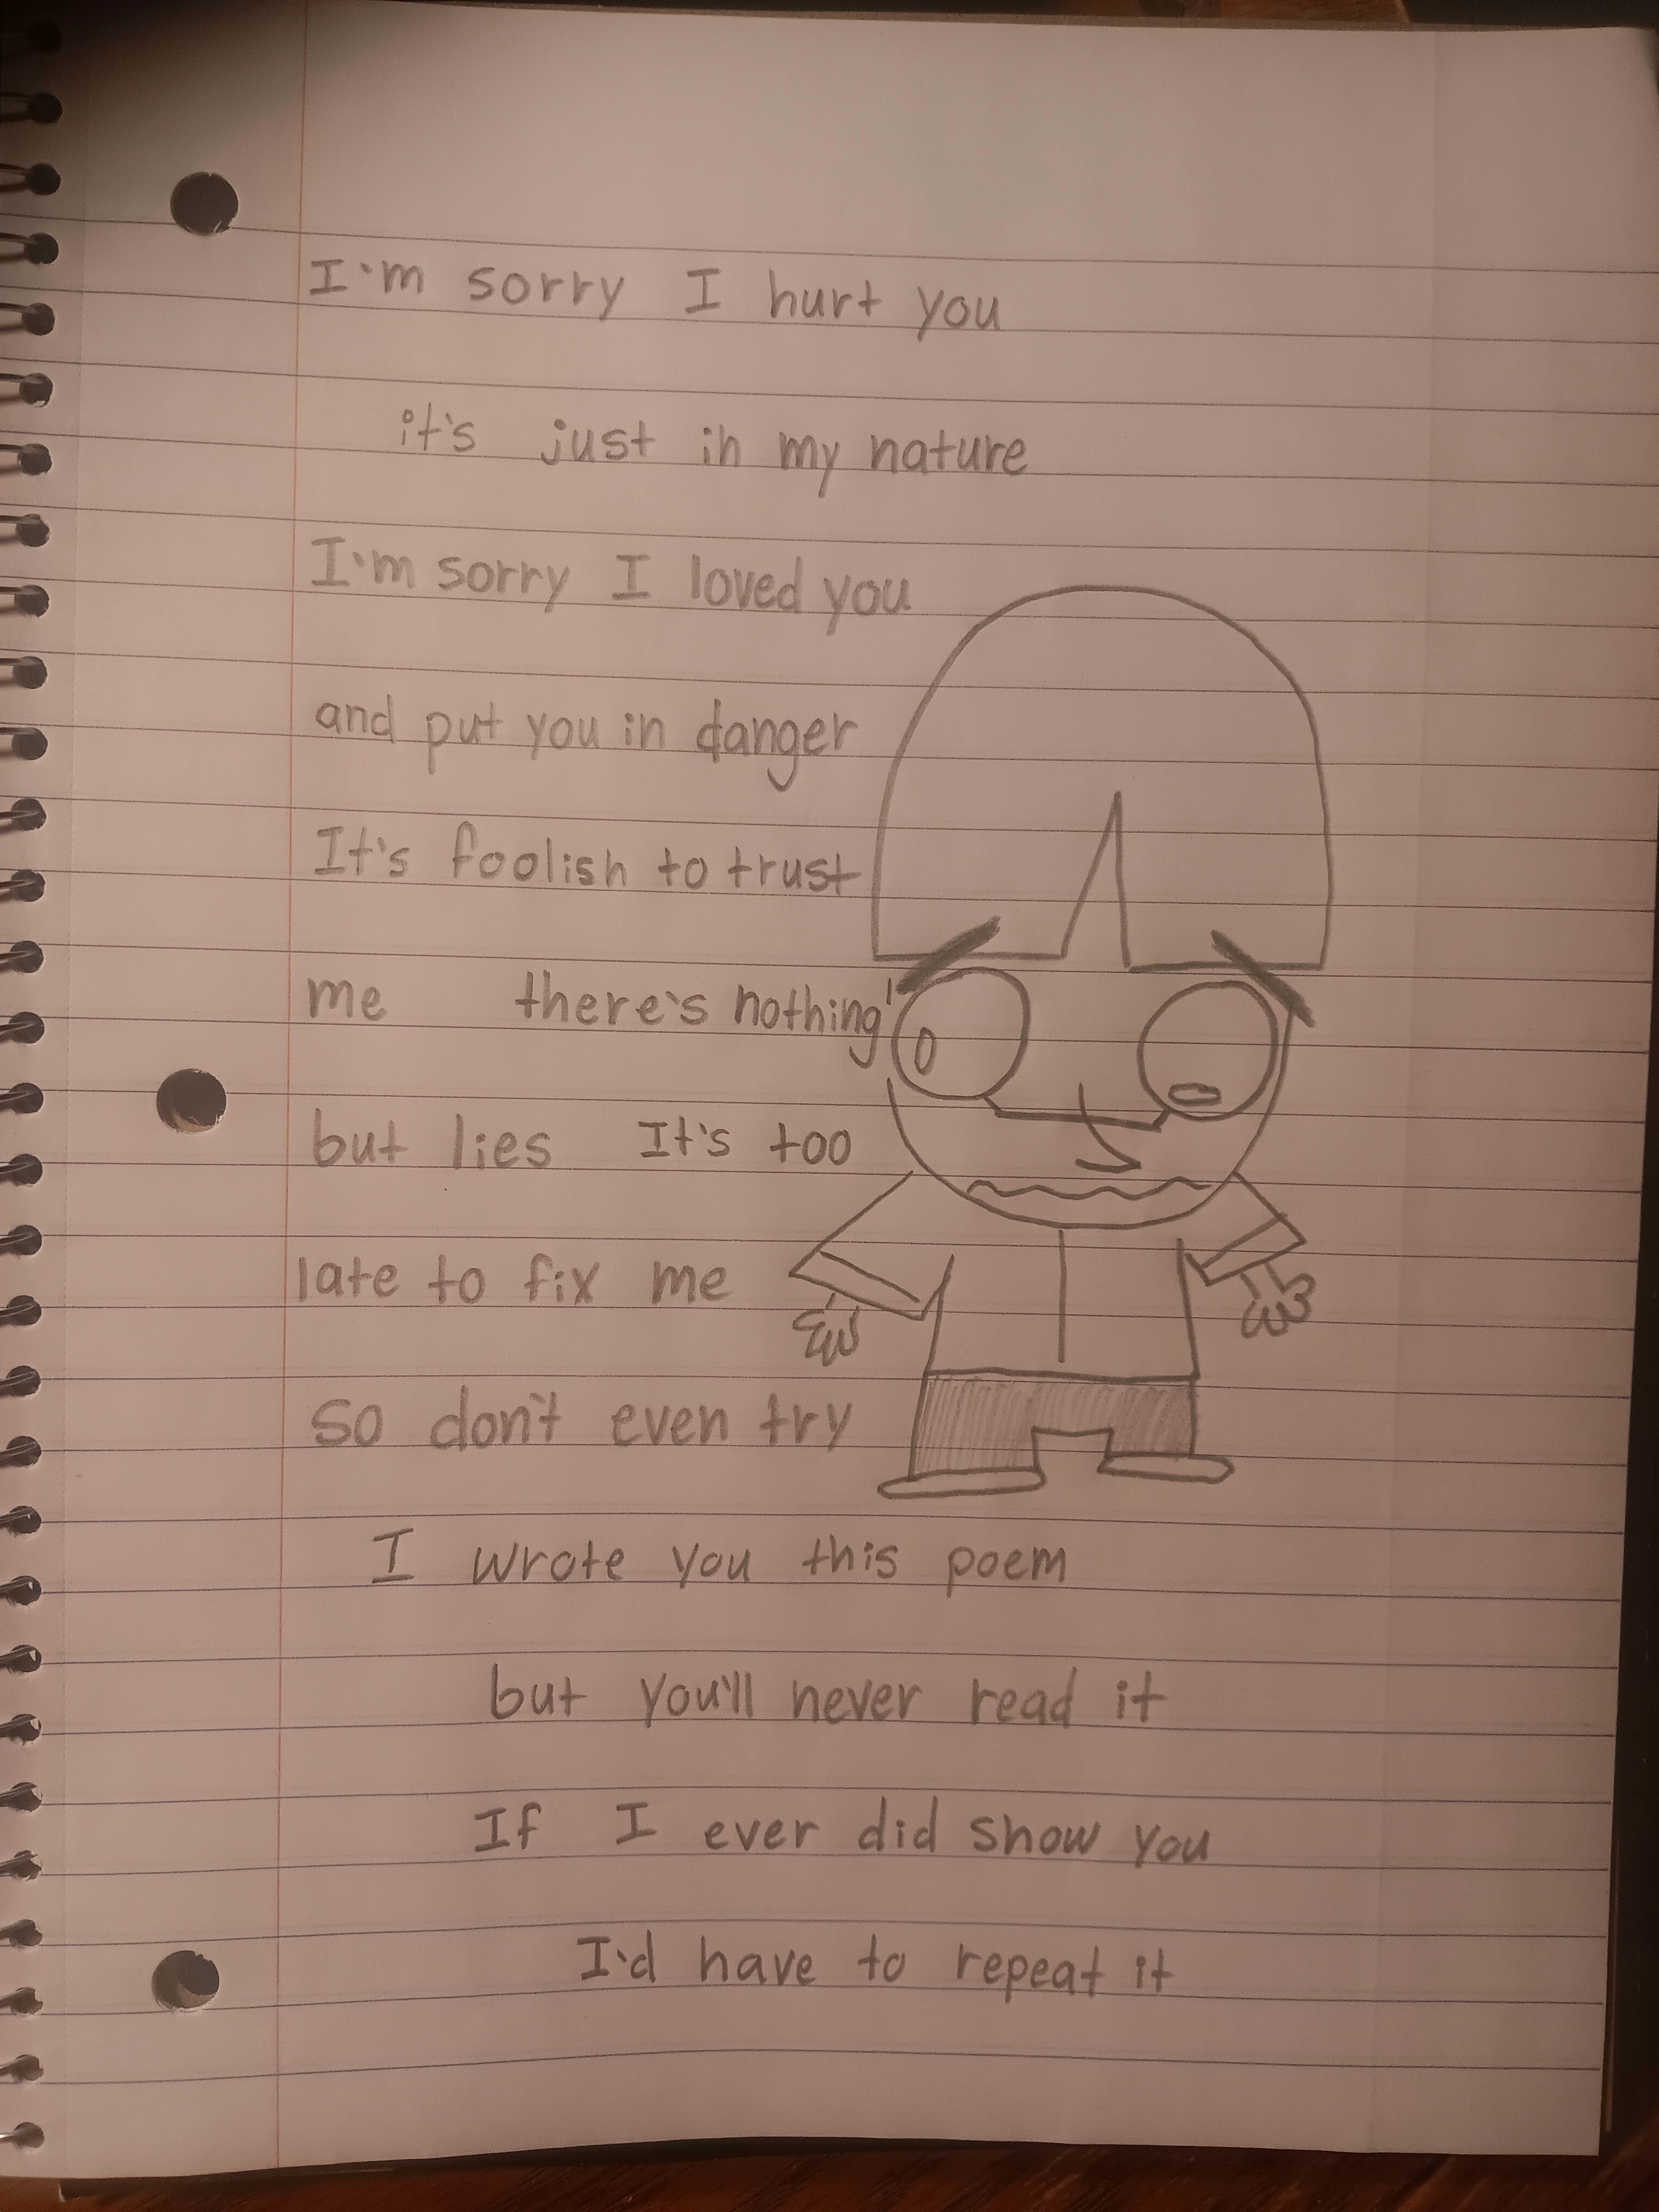 I'm sorry I hurt you
it's just in my nature
I'm sorry I loved you
and put you in danger
It's foolish to trust
me there's nothing
but lies It's too
late to fix me
so don't even try
I wrote you this poem
but you'll never read it
If I ever did show you
I'd have to repeat it